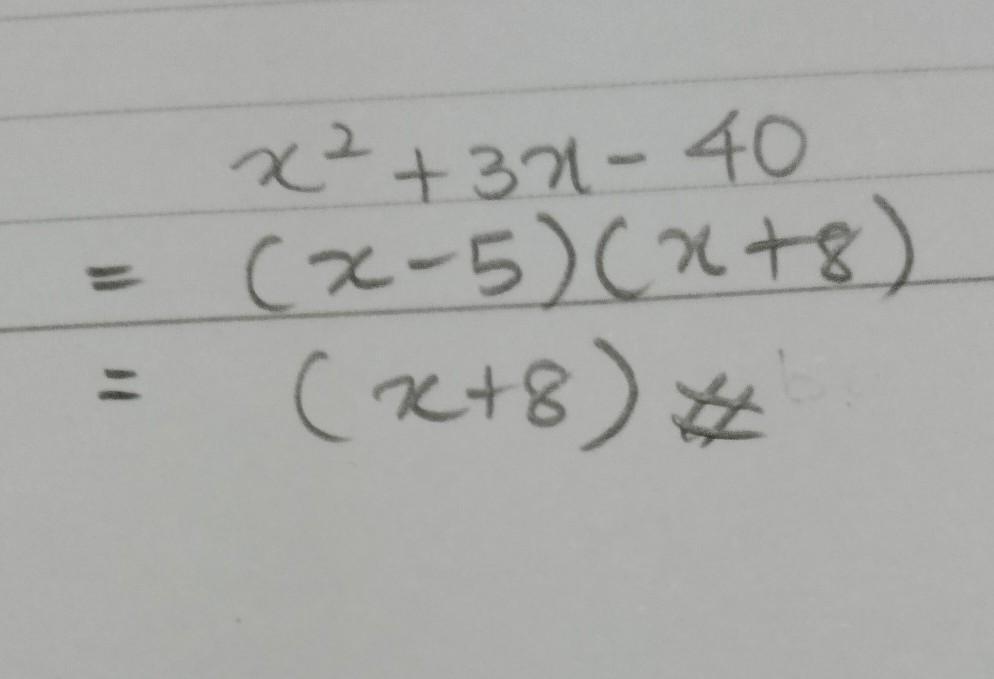 x² + 3x - 40
= (x - 5)(x + 8)
= (x + 8) #